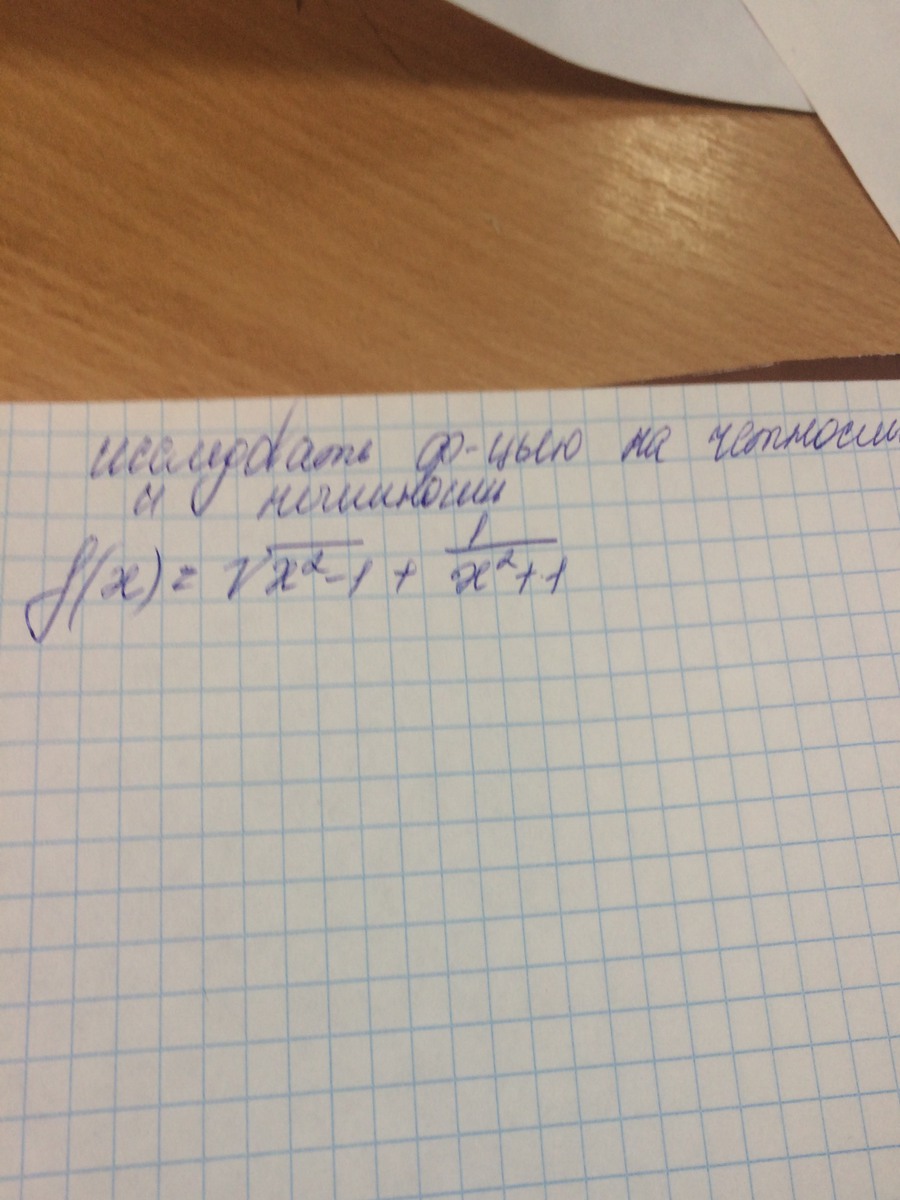 исследовать ф-цью на четност
и нечетности
f(x) = √x²-1 + 1/x²+1